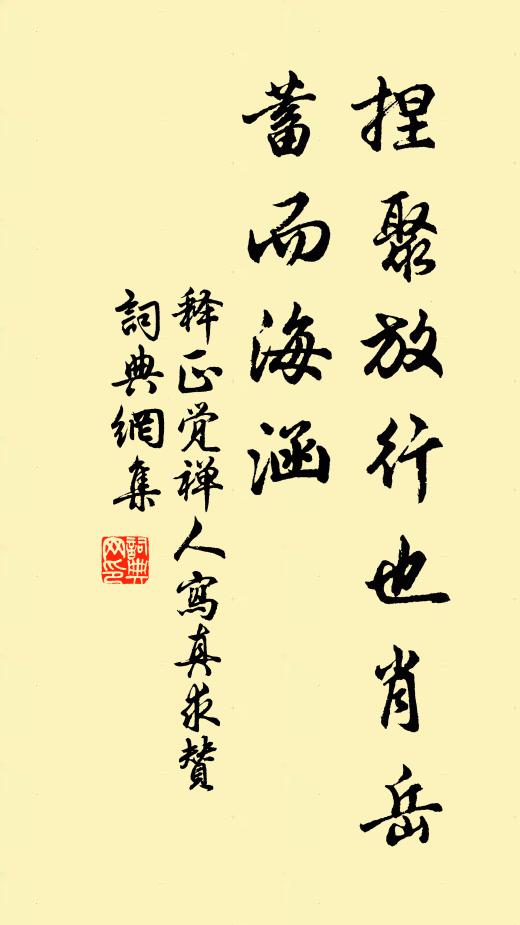 捏聚放行也肖岳
蓄而海涵
释正觉禅人寫真求贊
詞典網集
詞典网印